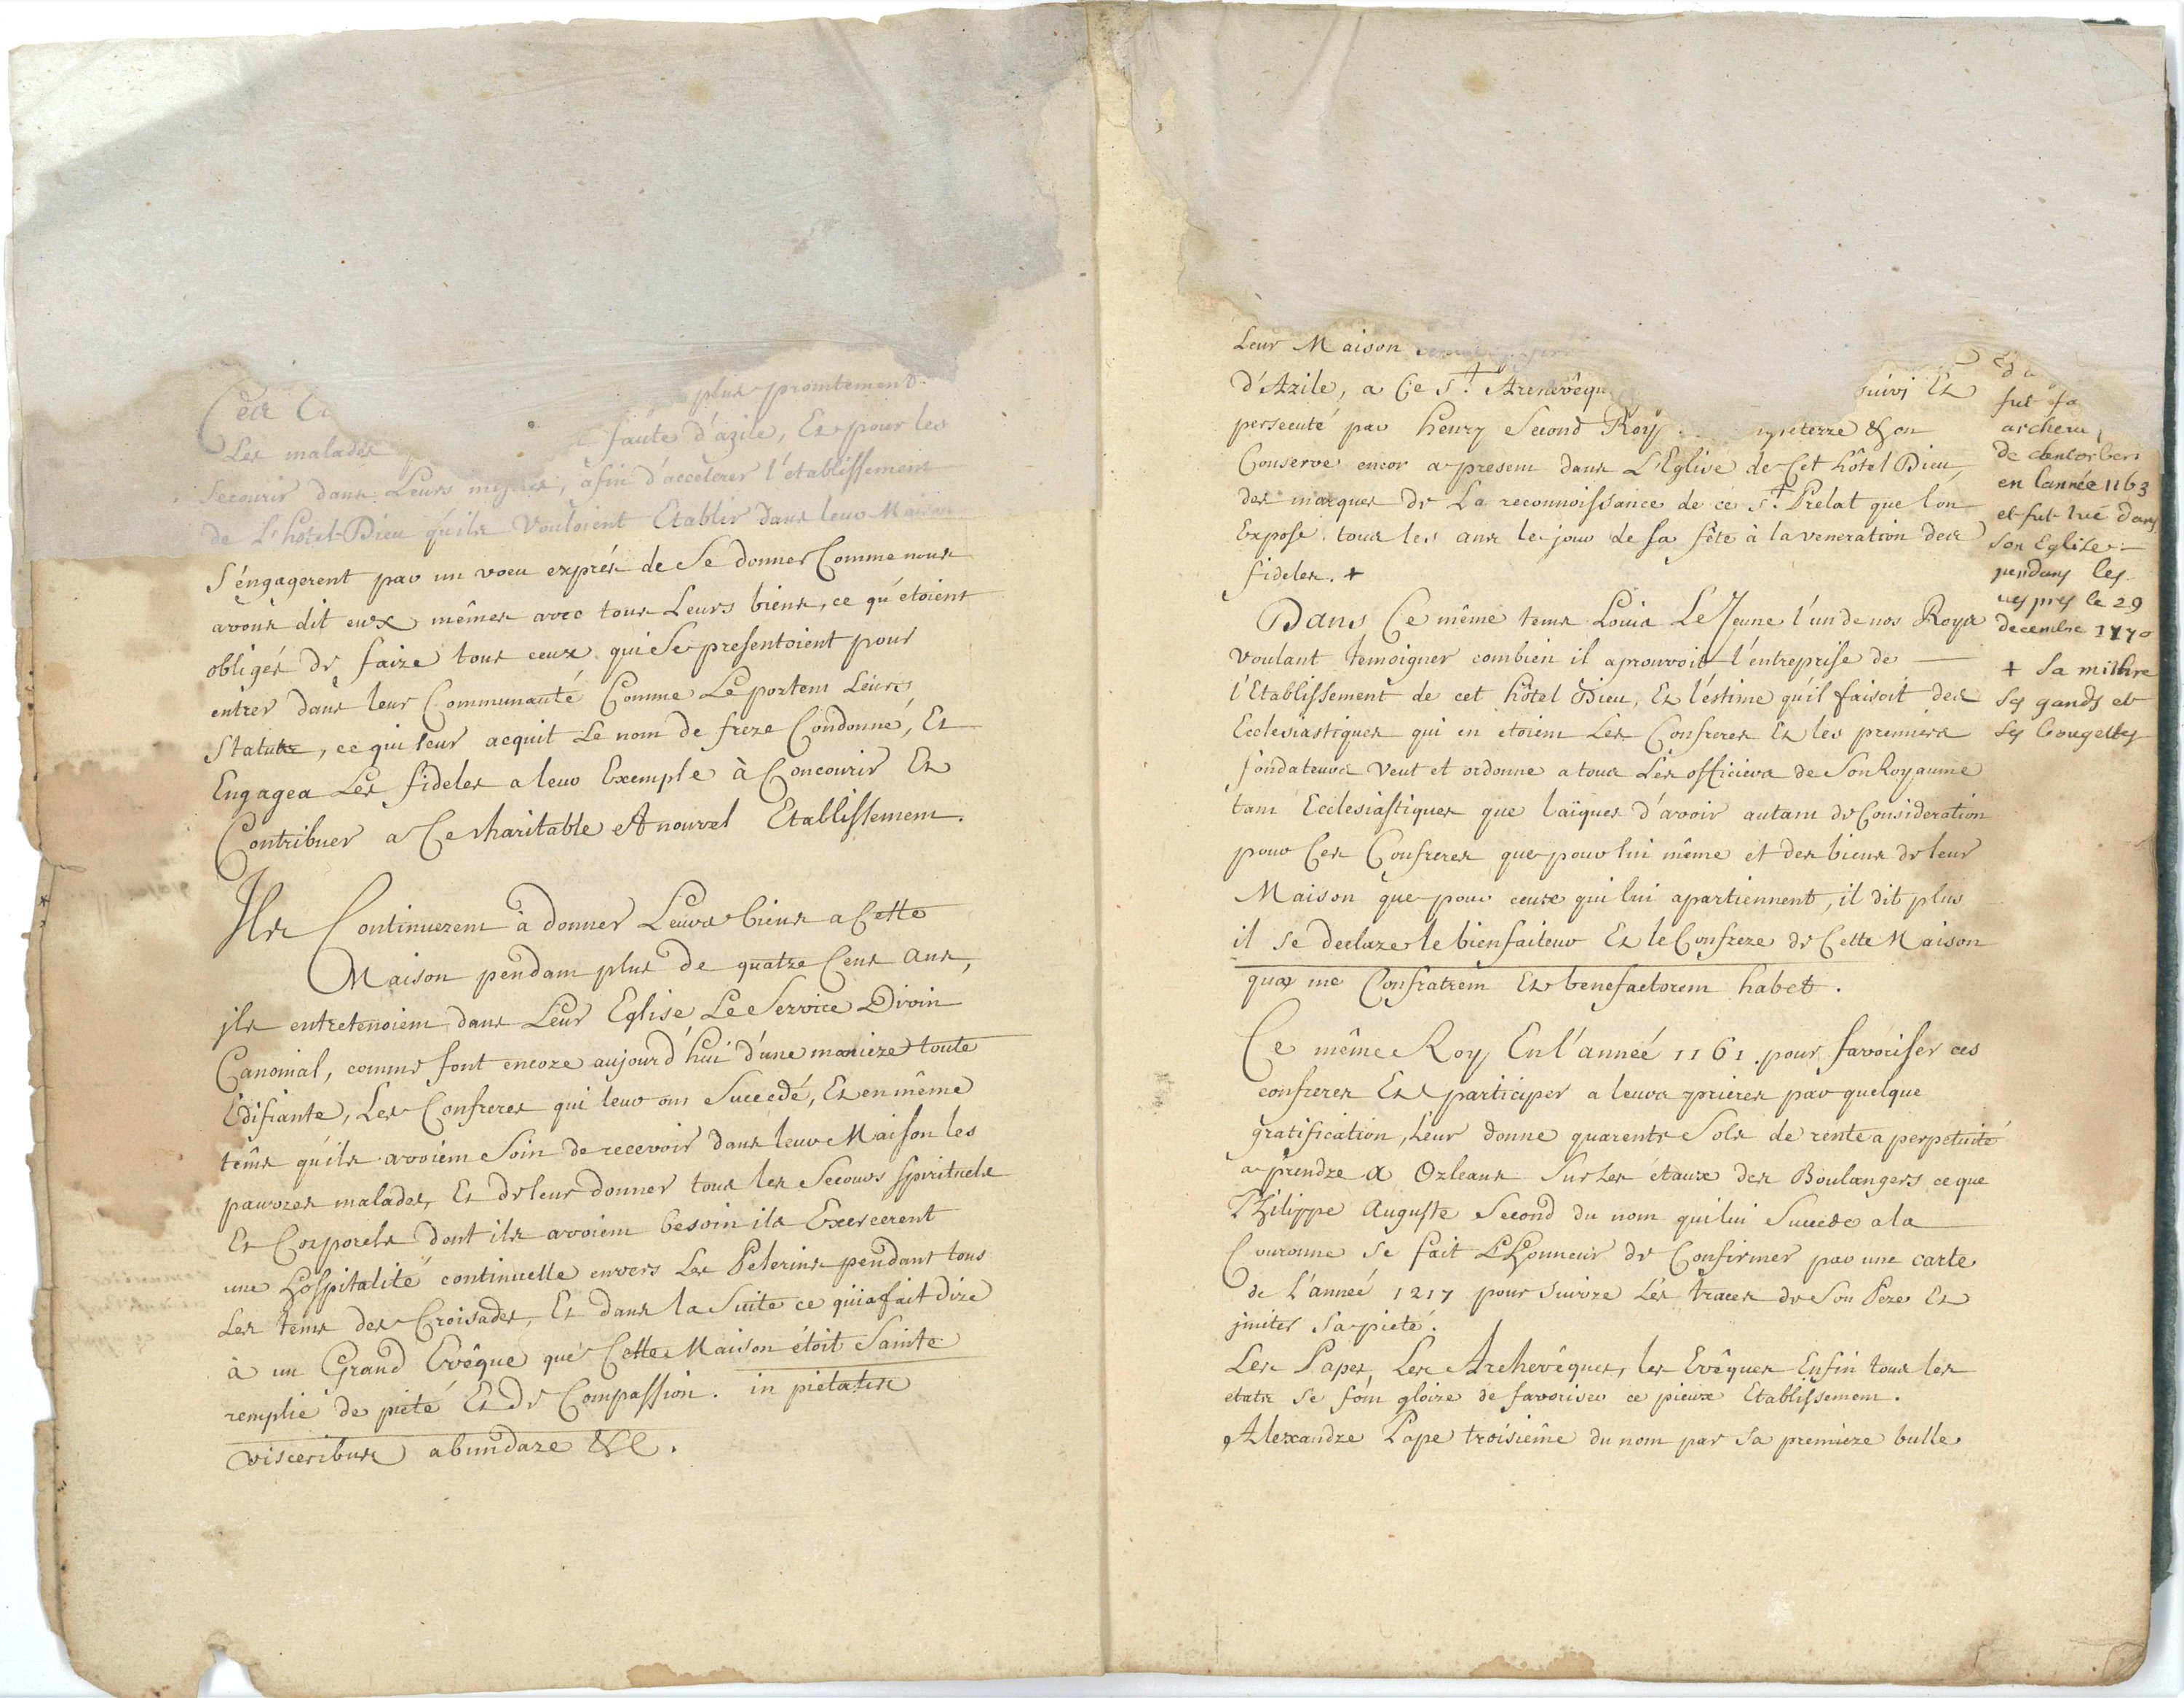 plus promtement
Ces
Les malades faute d'azile, Et pour les
Secourir dans Leurs, afin d'accelerer l'etablissement
de L'hôtel-Dieu qu'ils Vouloient Etablir dans leur Maison
S'engagerent par un voeu exprés de Se donner Comme nous
avons dit eux mêmes avec tous Leurs biens, ce qu'étoient
obligés de faire tous ceux qui Se presentoient pour
entrer dans leur Communauté Comme Le portent Leurs
Statuts, ce qui leur acquit Le nom de frere Condonné, Et
Engagea Les fideles a leur Exemple à Concourir Et
Contribuer a Ce charitable Et nouvel Etablissement.
Ils Continuerent à donner Leurs biens a Cette
Maison pendant plus de quatre Cens ans,
jls entretenoient dans Leur Eglise Le Service Divin
Canonial, comme font encore aujourd'hui d'une maniere toute
Edifiante, Les Confreres qui leur ont Succedé, Et en même
têms qu'ils avoient Soin de recevoir dans leur Maison les
pauvres malades, Et de leur donner tous les Secours Spirituels
Et Corporels dont ils avoient besoin ils Exercerent
une Hospitalité continuelle envers Les Pelerins pendant tous
Les tems des Croisades, Et dans la Suite ce qui a fait dire
à un Grand Evêque que Cette Maison étoit Sainte
remplie de pieté Et de Compassion. in pietatis
visceribus abundare &c.
Leur Maison
d'Azile, a Ce St. Archevêque suivi Et
persecuté par henry Second Roy & on
Conserve encor a present dans L'Eglise de Cet hôtel Dieu,
des marques de La reconnoissance de ce St. Prelat que l'on
Expose tous les ans le jour de sa fête à la veneration des
fideles. +
Dans Ce même tems Louis Le Jeune l'un de nos Roys
voulant temoigner combien il aprouvoit l'entreprise de
l'Etablissement de cet hôtel Dieu, Et l'estime qu'il faisoit des
Ecclesiastiques qui en etoient Les Confreres Et les premiers
fondateurs Veut et ordonne a tous Les officiers de Son Royaume
tant Ecclesiastiques que laïques d'avoir autant de Consideration
pour Ces Confreres que pour lui même et des biens de leur
Maison que pour ceux qui lui apartiennent, il dit plus
il se declare le bienfaiteur Et le Confrere de Cette Maison
quæ me Confratrem Et benefactorem habet.
Ce même Roy En l'année 1161. pour favoriser ces
confreres Et participer a leurs prieres par quelque
gratification, Leur donne quarente Sols de rente a perpetuité
a prendre a Orleans Sur Les étaux des Boulangers ce que
Philippe Auguste Second du nom qui lui Succede a la
Couronne Se fait L'Honneur de Confirmer par une carte
de L'année 1217 pour suivre Les traces de Son Pere Et
jmiter Sa pieté.
Les Papes, Les Archevêques, les Evêques Enfin tous les
etats Se font gloire de favoriser ce pieux Etablissement.
Alexandre Pape troisiême du nom par Sa premiere bulle
fut fa
archeu
de cantorberi
en lannée 1163
et fut tué dans
Son Eglise
pendans les
vespres le 29
decembre 1170
+ Sa mithre
Ses gands et
Ses bougettes